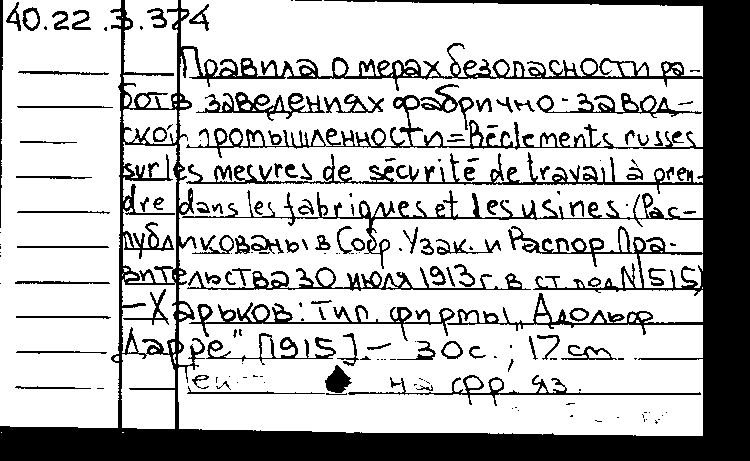 40.22.3.374
Правила о мерах безопасности ра-
бот в заведениях фабрично-завод-
ской промышленности = Réglements russes
sur les mesures de sécurité de travail à pren-
dre dans les fabriques et les usines: (Рас-
публикованы в Собр. Узак. и Распор. Пра-
вительства 30 июля 1913 г. в ст. под N 1515)
— Харьков: Тип. фирмы „Адольф
Дарре", [1915]. — 30 с.; 17 cm
на фр. яз.